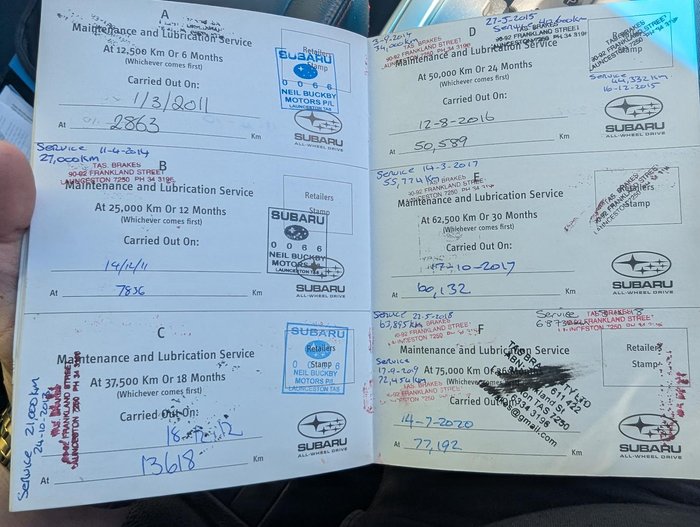 A
Maintenance and Lubrication Service
At 12,500 Km Or 6 Months
(Whichever comes first)
Carried Out On:
1/3/2011
At 2863 Km
Retailers
Stamp
SUBARU
0 0 6 6
NEIL BUCKBY
MOTORS P/L
LAUNCESTON TAS
SUBARU
ALL-WHEEL DRIVE
Service 11-4-2014
27,000km
TAS. BRAKES
90-92 FRANKLAND STREET
LAUNCESTON 7250 PH 34 3196
B
Maintenance and Lubrication Service
At 25,000 Km Or 12 Months
(Whichever comes first)
Carried Out On:
14/12/11
At 7836 Km
Retailers
Stamp
SUBARU
0 0 6 6
NEIL BUCKBY
MOTORS
LAUNCESTON TAS
SUBARU
ALL-WHEEL DRIVE
C
Maintenance and Lubrication Service
At 37,500 Km Or 18 Months
(Whichever comes first)
Carried Out On:
12
At 13618 Km
Service 21,000km
24-10-2013
FRANKLAND STREET
Retailers
Stamp
SUBARU
NEIL BUCKBY
MOTORS P/L
LAUNCESTON TAS
SUBARU
ALL-WHEEL DRIVE
34,000km
TAS. BRAKES
90-92 FRANKLAND STREET
27-5-2015
Service
D
Maintenance and Lubrication Service
At 50,000 Km Or 24 Months
(Whichever comes first)
Carried Out On:
12-8-2016
At 50,589 Km
TAS. BRAKES
90-92 FRANKLAND STREET
LAUNCESTON 7250 PH 34 3196
Service
44,332km
16-12-2015
SUBARU
ALL-WHEEL DRIVE
Service 14-3-2017
55,774 Km
TAS. BRAKES
90-92 FRANKLAND STREET
LAUNCESTON 7250
Maintenance and Lubrication Service
At 62,500 Km Or 30 Months
(Whichever comes first)
Carried Out On:
17-10-2017
At 60,132 Km
Retailers
Stamp
FRANKLAND STREET
SUBARU
ALL-WHEEL DRIVE
Service 21-5-2018
63,895km
TAS. BRAKES
FRANKLAND STREET
F
Maintenance and Lubrication Service
At 75,000 Km Or
(Whichever comes first)
Carried Out On:
14-7-2020
At 77,192 Km
Service
17-9-2019
72,454km
Service
TAS. BRAKES
90-92 FRANKLAND STREET
LAUNCESTON 7250 PH 34 3196
Retailers
Stamp
TAS 7250
6334 3196
@gmail.com
SUBARU
ALL-WHEEL DRIVE